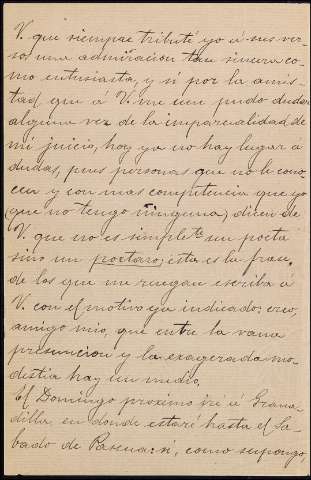 V. que siempre tributé yo á sus ver-
sos una admiración tan sincera co-
mo entusiasta, y si por la amis-
tad que á V. me une pudo dudar
alguna vez de la imparcialidad de
mi juicio, hoy ya no hay lugar á
dudas, pues personas que no le cono-
cen y con mas competencia que yo
(que no tengo ninguna) dicen de
V. que no es simplete un poeta
sino un poetazo; esta es la frase
de los que me ruegan escriba á
V. con el motivo ya indicado: creo,
amigo mio, que entre la vana
presuncion y la exagerada mo-
destia hay un medio.
El Domingo próximo iré á Grana-
dilla, en donde estaré hasta el Sá-
bado de Pascua: si, como supongo,